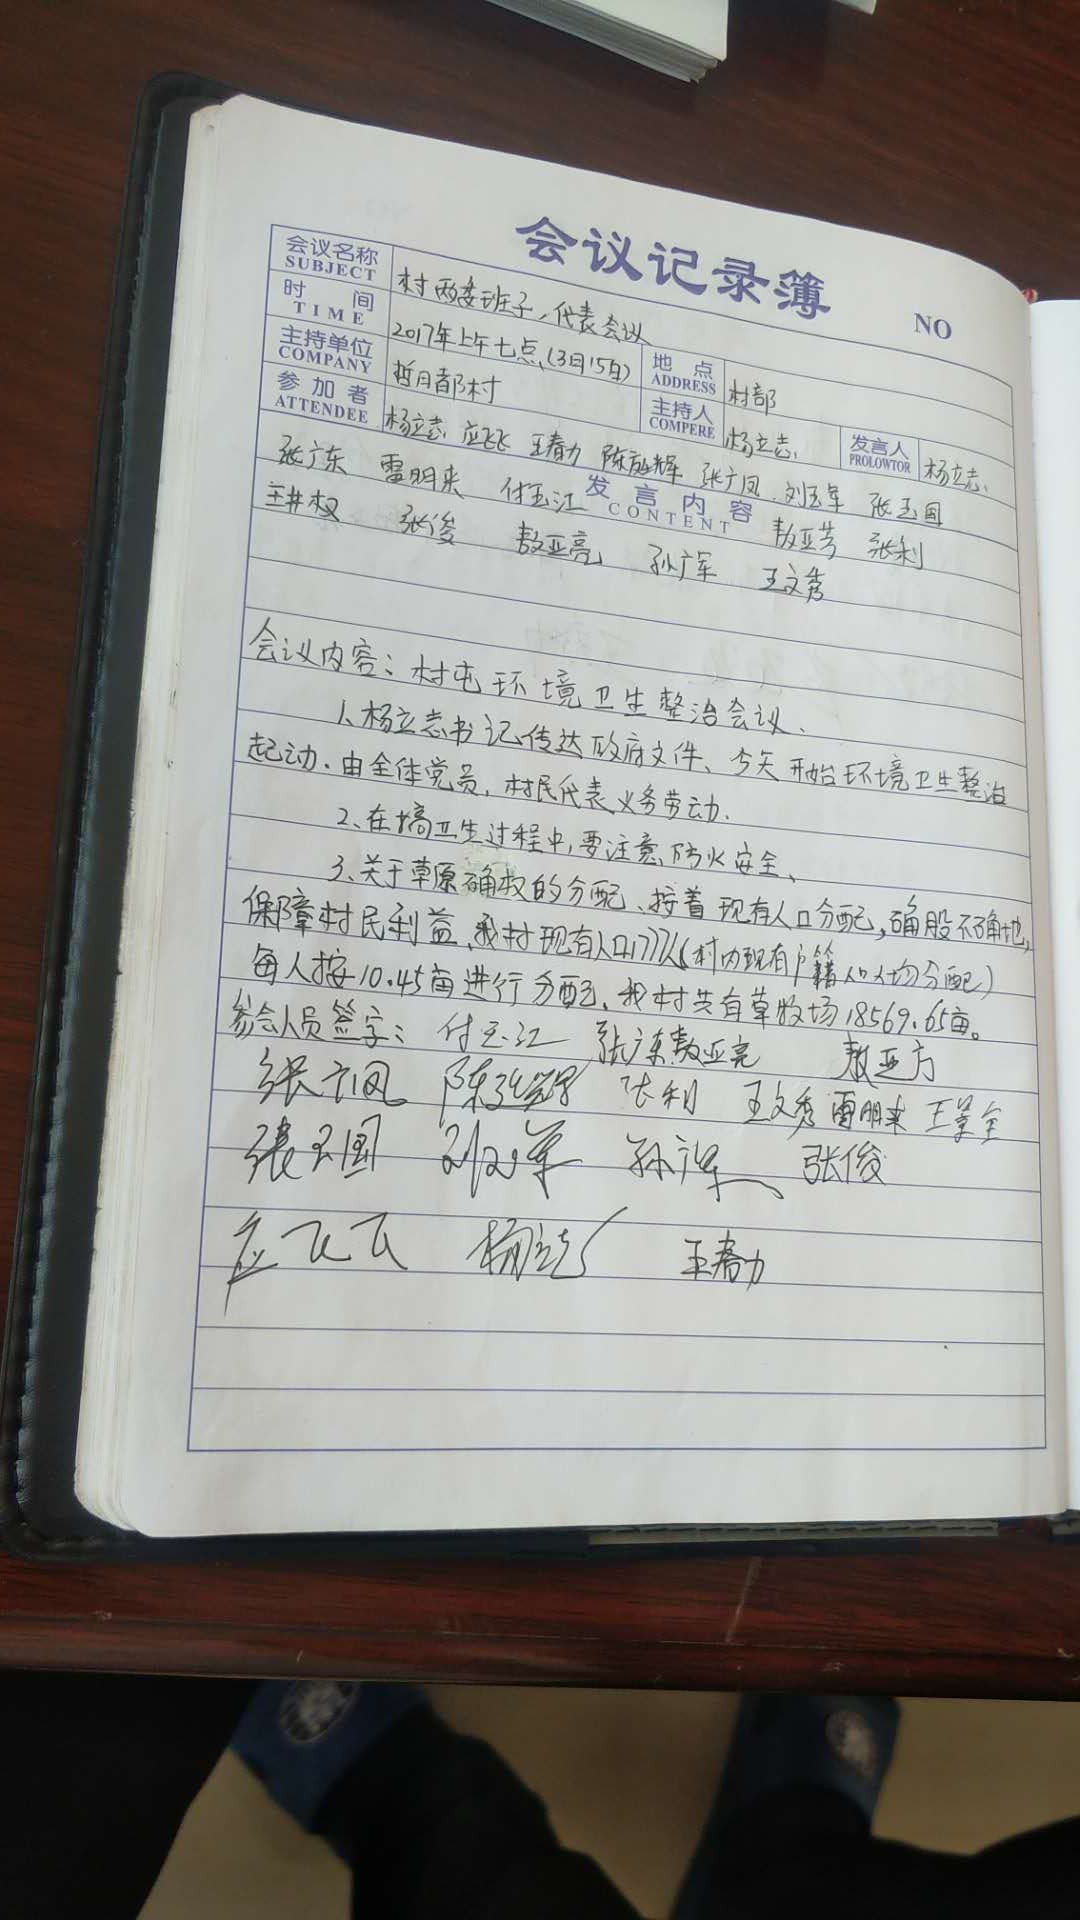 会议记录簿
NO
会议名称 村两委班子、代表会议
SUBJECT
时间 2017年上午七点(3月15日) 地点 村部
TIME ADDRESS
主持单位 哲月都村 主持人 杨立志. 发言人 杨立志.
COMPANY COMPERE PROLOWTOR
参加者 杨立志 应飞飞 王春力 陈 辉 张广凤 刘玉军 张玉国
ATTENDEE
张广东 雷明来 付玉江 发言内容 敖亚芳 张利
CONTENT
王井权 张俊 敖亚亮 孙广军 王文秀
会议内容:村屯环境卫生整治会议.
1、杨立志书记传达政府文件、今天开始环境卫生整治
起动.由全体党员,村民代表义务劳动.
2、在搞卫生过程中,要注意防火安全、
3、关于草原确权的分配、按着现有人口分配,确股不确地,
保障村民利益、我村现有人口1777人(村内现有户籍人口人均分配)
每人按10.45亩进行分配、我村共有草牧场18569.65亩。
参会人员签字: 付玉江 张广东 敖亚亮 敖亚方
张广凤 陈 辉 张利 王文秀 雷明来 王景全
張玉国 刘玉军 孙广军 张俊
应飞飞 杨立志 王春力